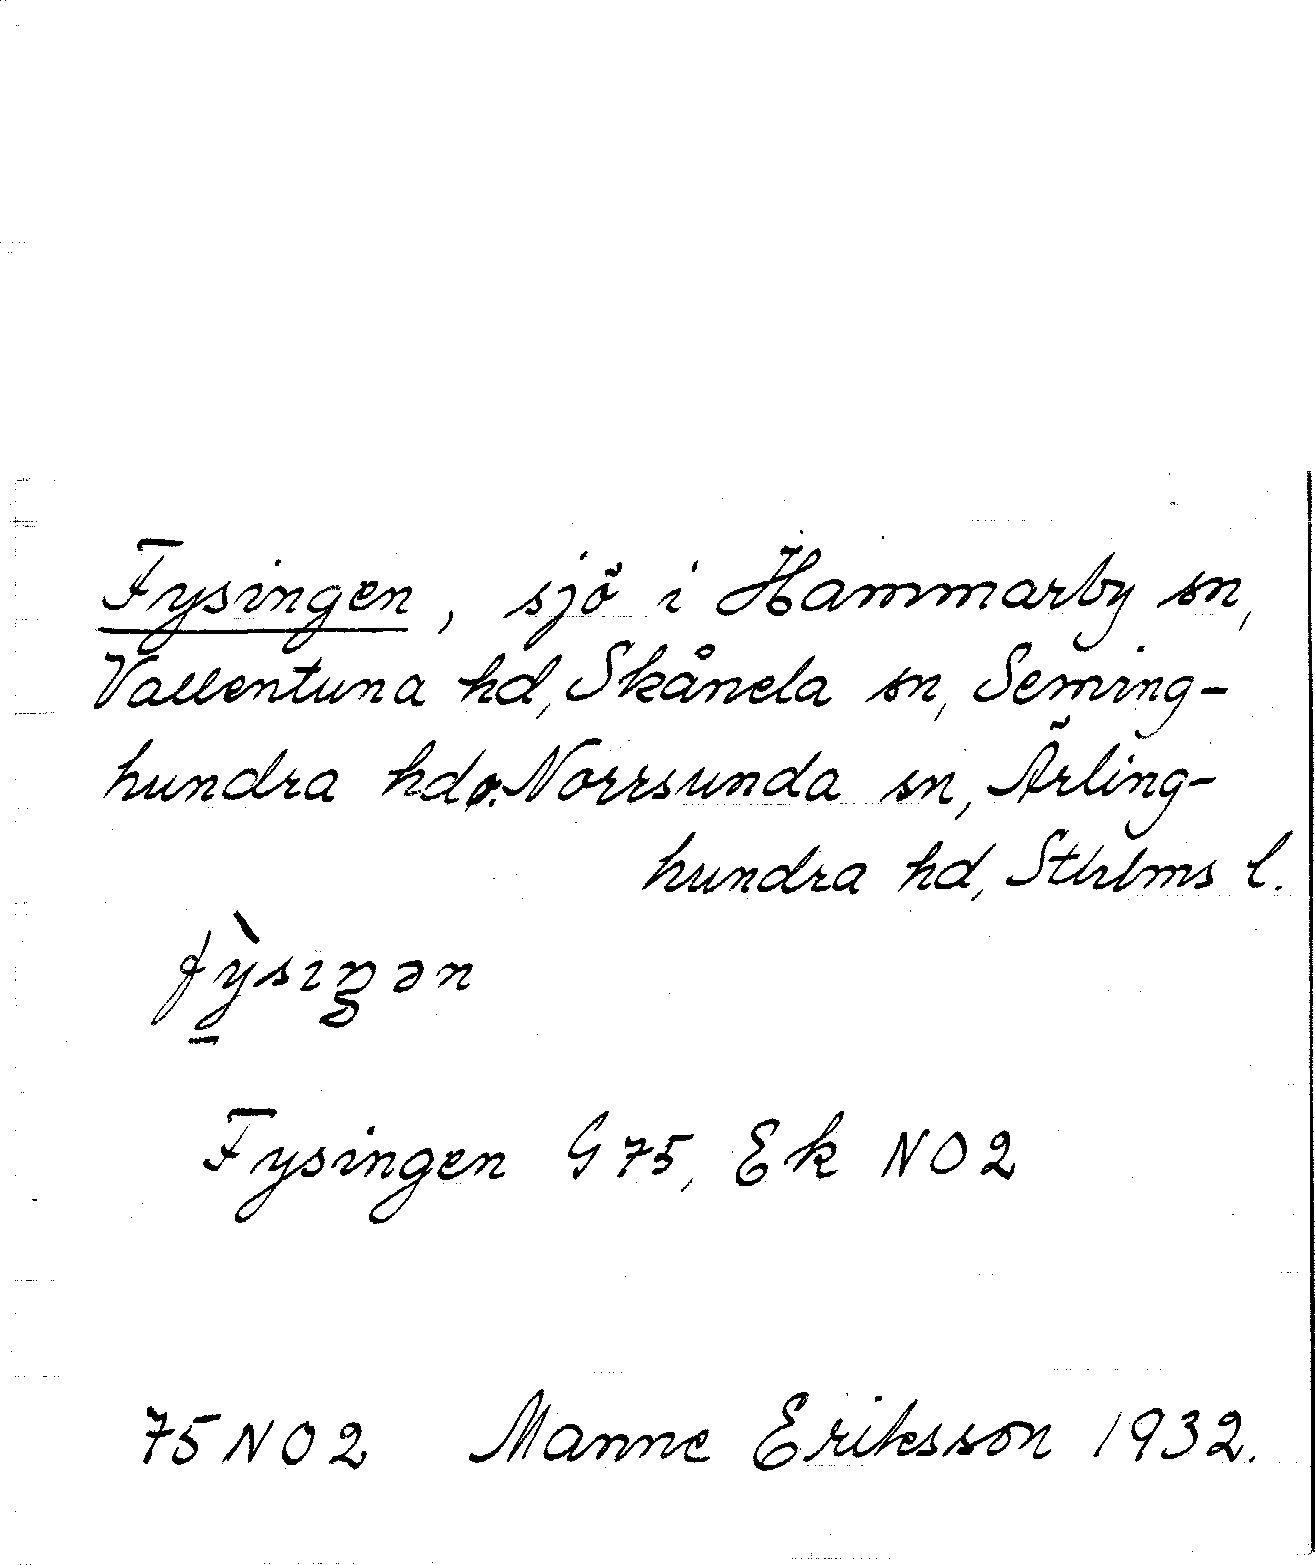 Fysingen, sjö i Hammarby sn,
Vallentuna hd, Skånela sn, Seming-
hundra hd o. Norrsunda sn, Ärling-
hundra hd, Sthlms l.
fỳ̱sıŋən
Fysingen G75, Ek NO2
75NO2 Manne Eriksson 1932.